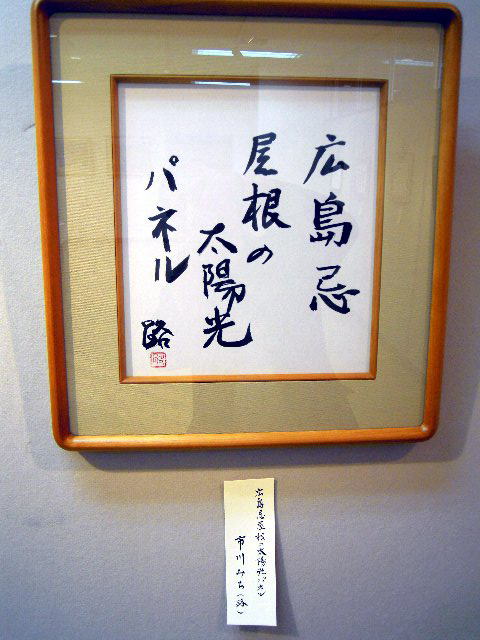 広島忌
屋根の
太陽光
パネル
路
広島忌屋根の太陽光パネル
市川みち(路)